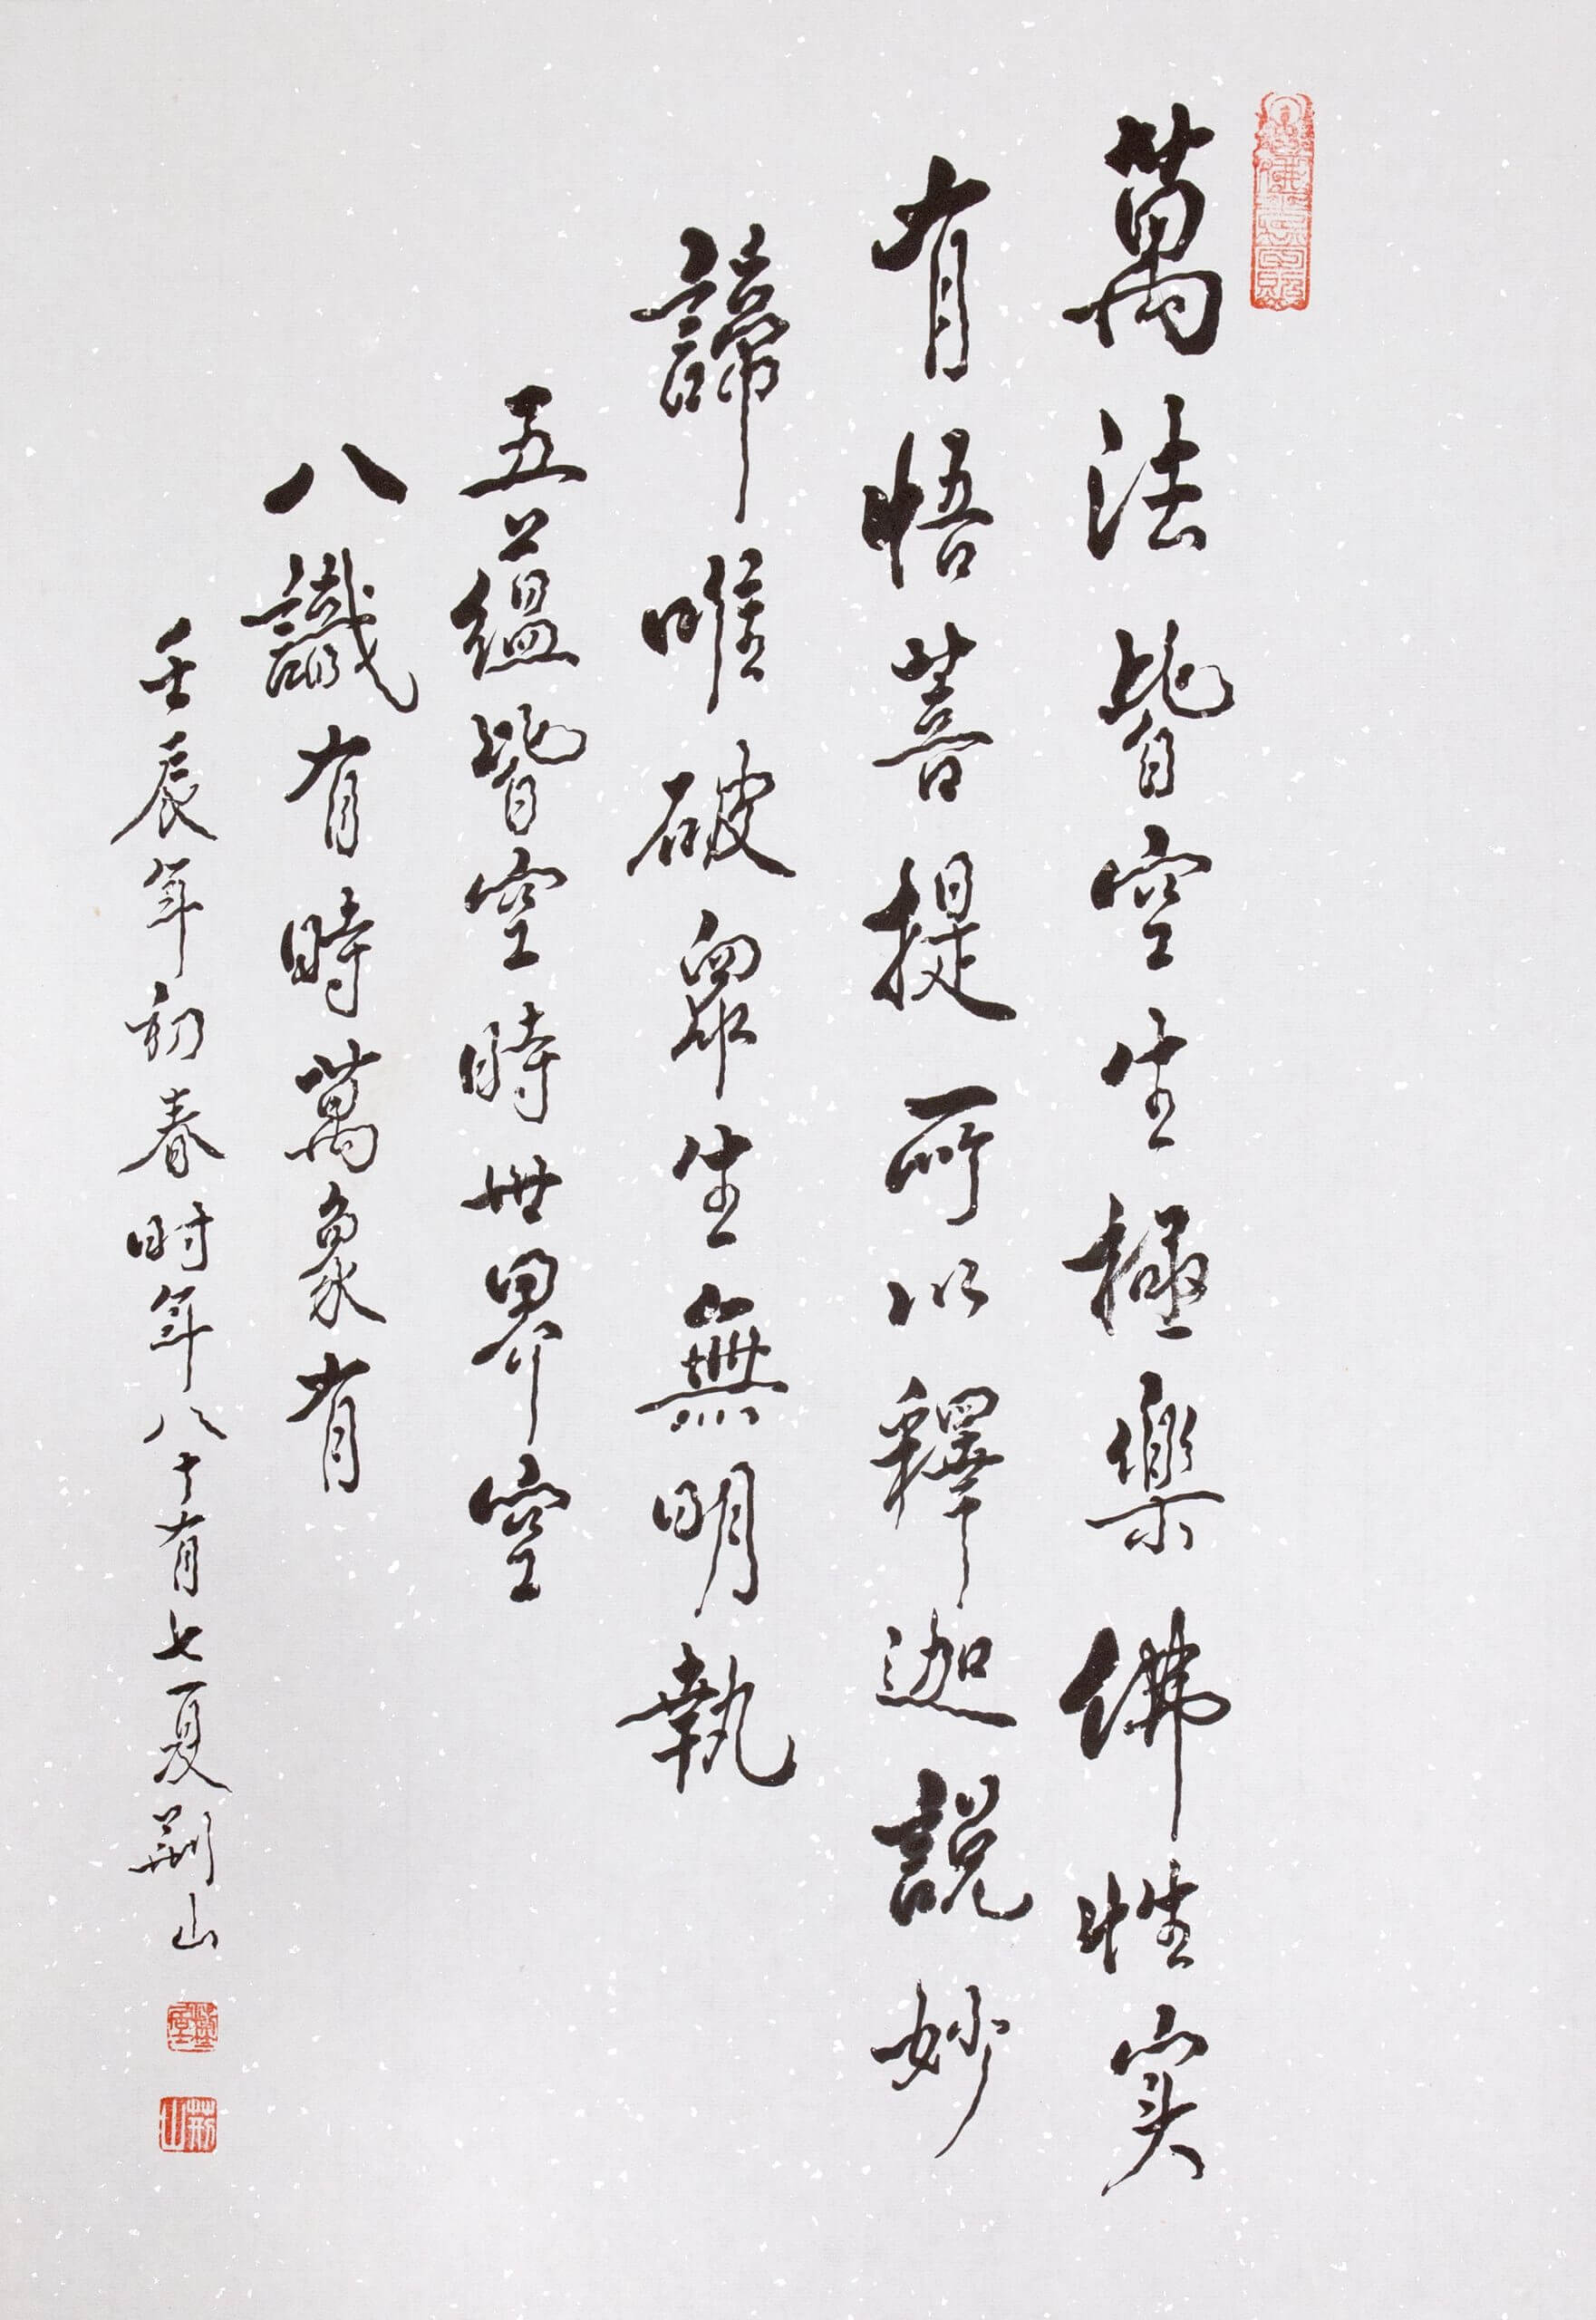 萬法皆空生極樂佛性实
有悟菩提所以釋迦說妙
諦唯破眾生無明執
五蘊皆空時世界空
八識有時萬象有
壬辰年初春时年八十有七夏荆山
荊山